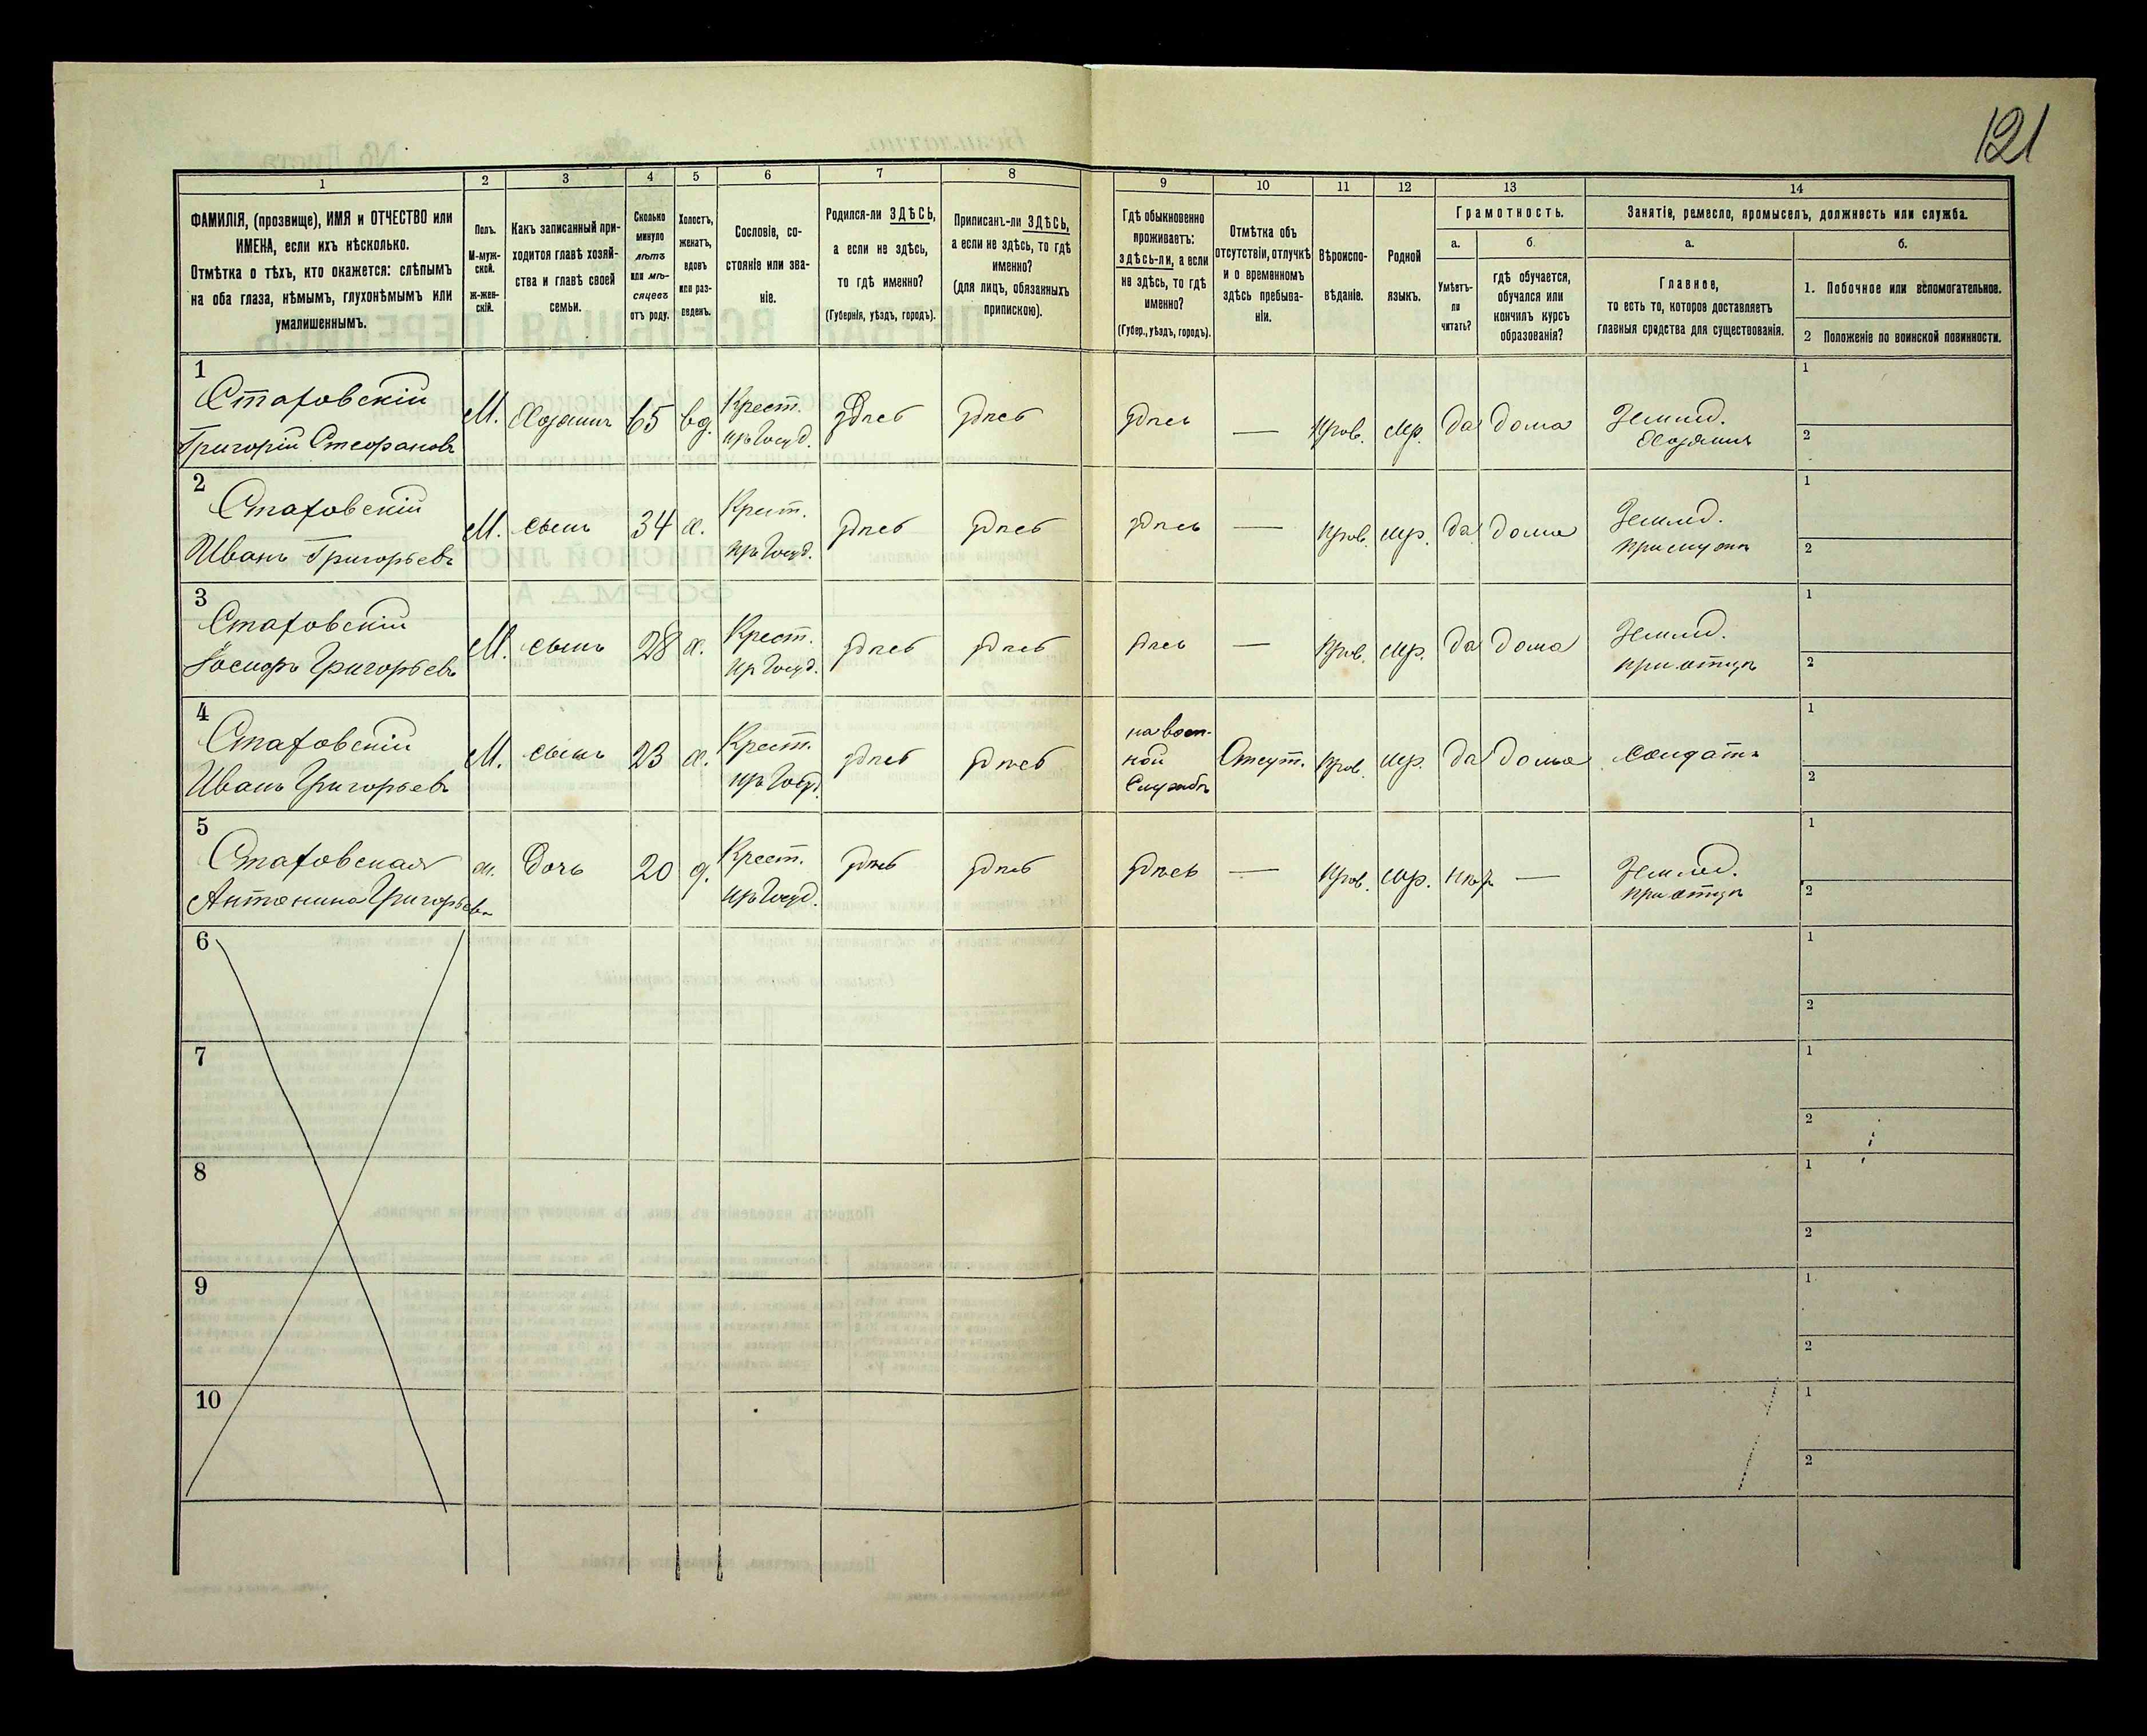 121
1
2
3
4
5
6
7
8
9
10
11
12
13
14
ФАМИЛІЯ, (прозвище), ИМЯ и ОТЧЕСТВО или
ИМЕНА, если ихъ нѣсколько.
Отмѣтка о тѣхъ, кто окажется: слѣпымъ
на оба глаза, нѣмымъ, глухонѣмымъ или
умалишеннымъ.
Полъ.
М-муж-
ской.
Ж-жен-
скій.
Какъ записанный при-
ходится главѣ хозяй-
ства и главѣ своей
семьи.
Сколько
минуло
лѣтъ
или мѣ-
сяцевъ
отъ роду.
Холостъ,
женатъ,
вдовъ
или раз-
веденъ.
Сословіе, со-
стояніе или зва-
ніе.
Родился-ли ЗДѢСЬ,
а если не здѣсь,
то гдѣ именно?
(Губернія, уѣздъ, городъ).
Приписанъ-ли ЗДѢСЬ,
а если не здѣсь, то гдѣ
именно?
(для лицъ, обязанныхъ
припискою).
Гдѣ обыкновенно
проживаетъ:
здѣсь-ли, а если
не здѣсь, то гдѣ
именно?
(Губер., уѣздъ, городъ).
Отмѣтка объ
отсутствіи, отлучкѣ
и о временномъ
здѣсь пребыва-
ніи.
Вѣроиспо-
вѣданіе.
Родной
языкъ.
Грамотность.
а.
Умѣетъ-
ли
читать?
б.
гдѣ обучается,
обучался или
кончилъ курсъ
образованія?
Занятіе, ремесло, промыселъ, должность или служба.
а.
Главное,
то есть то, которое доставляетъ
главныя средства для существованія.
б.
1. Побочное или вспомогательное.
2 Положеніе по воинской повинности.
1
Стаховскій
Григорій Стефановъ
М. Хозяинъ 65 вд.
Крест.
изъ Госуд.
здѣсь здѣсь здѣсь — Прав. Мр. да дома
Землед.
Хозяинъ
1
2
2
Стаховскій
Иванъ Григорьевъ
М. сынъ 34 х.
Крест.
изъ Госуд.
здѣсь здѣсь здѣсь — Прав. мр. да дома
Землед.
1
2
3
Стаховскій
Григорьевъ
М. сынъ 28 х.
Крест.
из Госуд.
здѣсь здѣсь здѣсь — Прав. мр. да дома
Землед.
при отцѣ
1
2
4
Стаховскій
Иванъ Григорьевъ
М. сынъ 23 х.
Крест.
изъ Госуд.
здѣсь здѣсь
на воен-
ной
Службѣ
Отсут. Прав. мр. да дома солдатъ
1
2
5
Стаховская
Антонина Григорьев
ж. Дочь 20 д.
Крест.
изъ Госуд.
здѣсь здѣсь здѣсь — Прав. мр. нѣт —
Землед.
при отцѣ
1
2
6
1
2
7
1
2
8
1
2
9
1
2
10
1
2